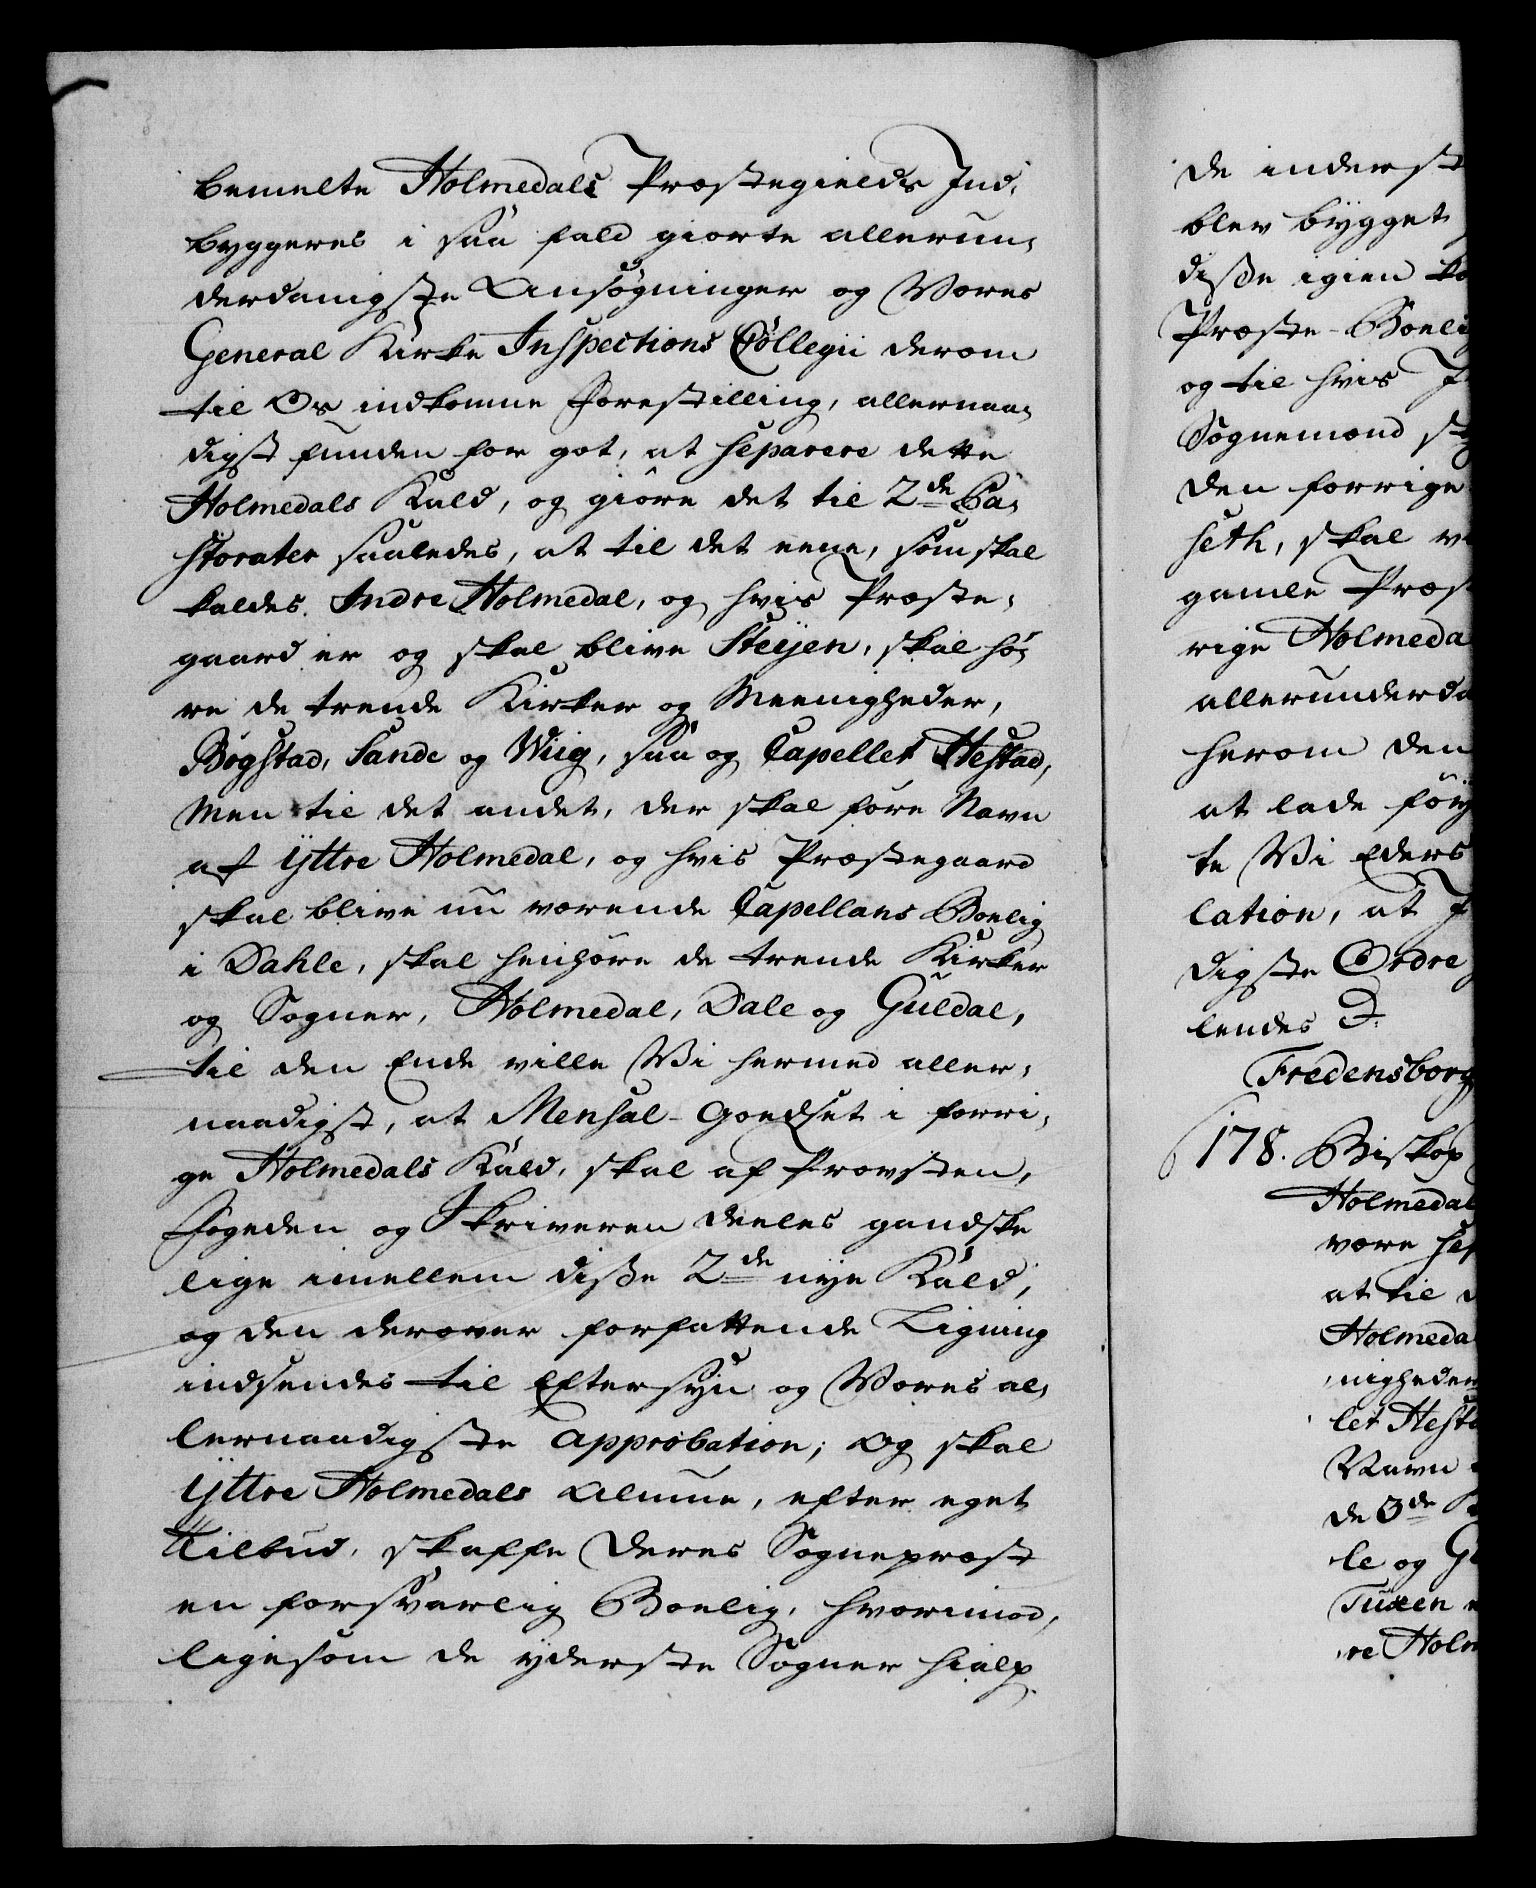 bemelte Holmedals Præstegields Ind,
byggeres i saa fald giorte allerun,
derdanigste Ansøgninger og Vores
General Kirke Inspections Collegii derom
til Os indkomne Forestilling, allernaa,
digst funden for got, at separere dette
Holmedals Kald, og giøre det til 2de Pa,
storater saaledes, at til det eene, som skal
kaldes Indre Holmedal, og hvis Præste,
gaard er og skal blive Steijen, skal hø,
re de trende Kirker og Meenigheder,
Bøgstad, Sande og Wiig, saa og Capellet Hestad,
Men til det andet, der skal føre Navn
af Yttre Holmedal, og hvis Præstegaard
skal blive nu værende Capellans Boelig
i Dahle, skal henhøre de trende Kirker
og Sogner, Holmedal, Dale og Guldal,
til den Ende ville Vi hermed aller,
naadigst, at Mensal-Goedset i forri,
ge Holmedals Kald, skal af Provsten,
Fogeden og Skriveren deeles gandske
lige imellem disse 2de nye Kald,
og den derover forfattende Ligning
indsendes til Eftersyn og Vores al,
lernaadigste Approbation; Og skal
Yttre Holmedals Almue, efter eget
Tilbud, skaffe deres Sognepræst
en forsvarlig Boelig, hvorimod,
ligesom de yderste Sogner hialp
de inderst
blev bygget
disse igien
Præste-Boeli
og til hvis
Sognemænd
den forrige
seth, skal
gamle Præst
rige Holmeda
allerunderda
herom den
at lade føy
te Vi Eders
lation, at
digste Ordre
lendes D.
Fredensborg
178. Biskop
Holmedal
være sep
at til
Holmeda
nigheder
let Hest
Navn
de 3de
le og G
Tuxen
re Holm